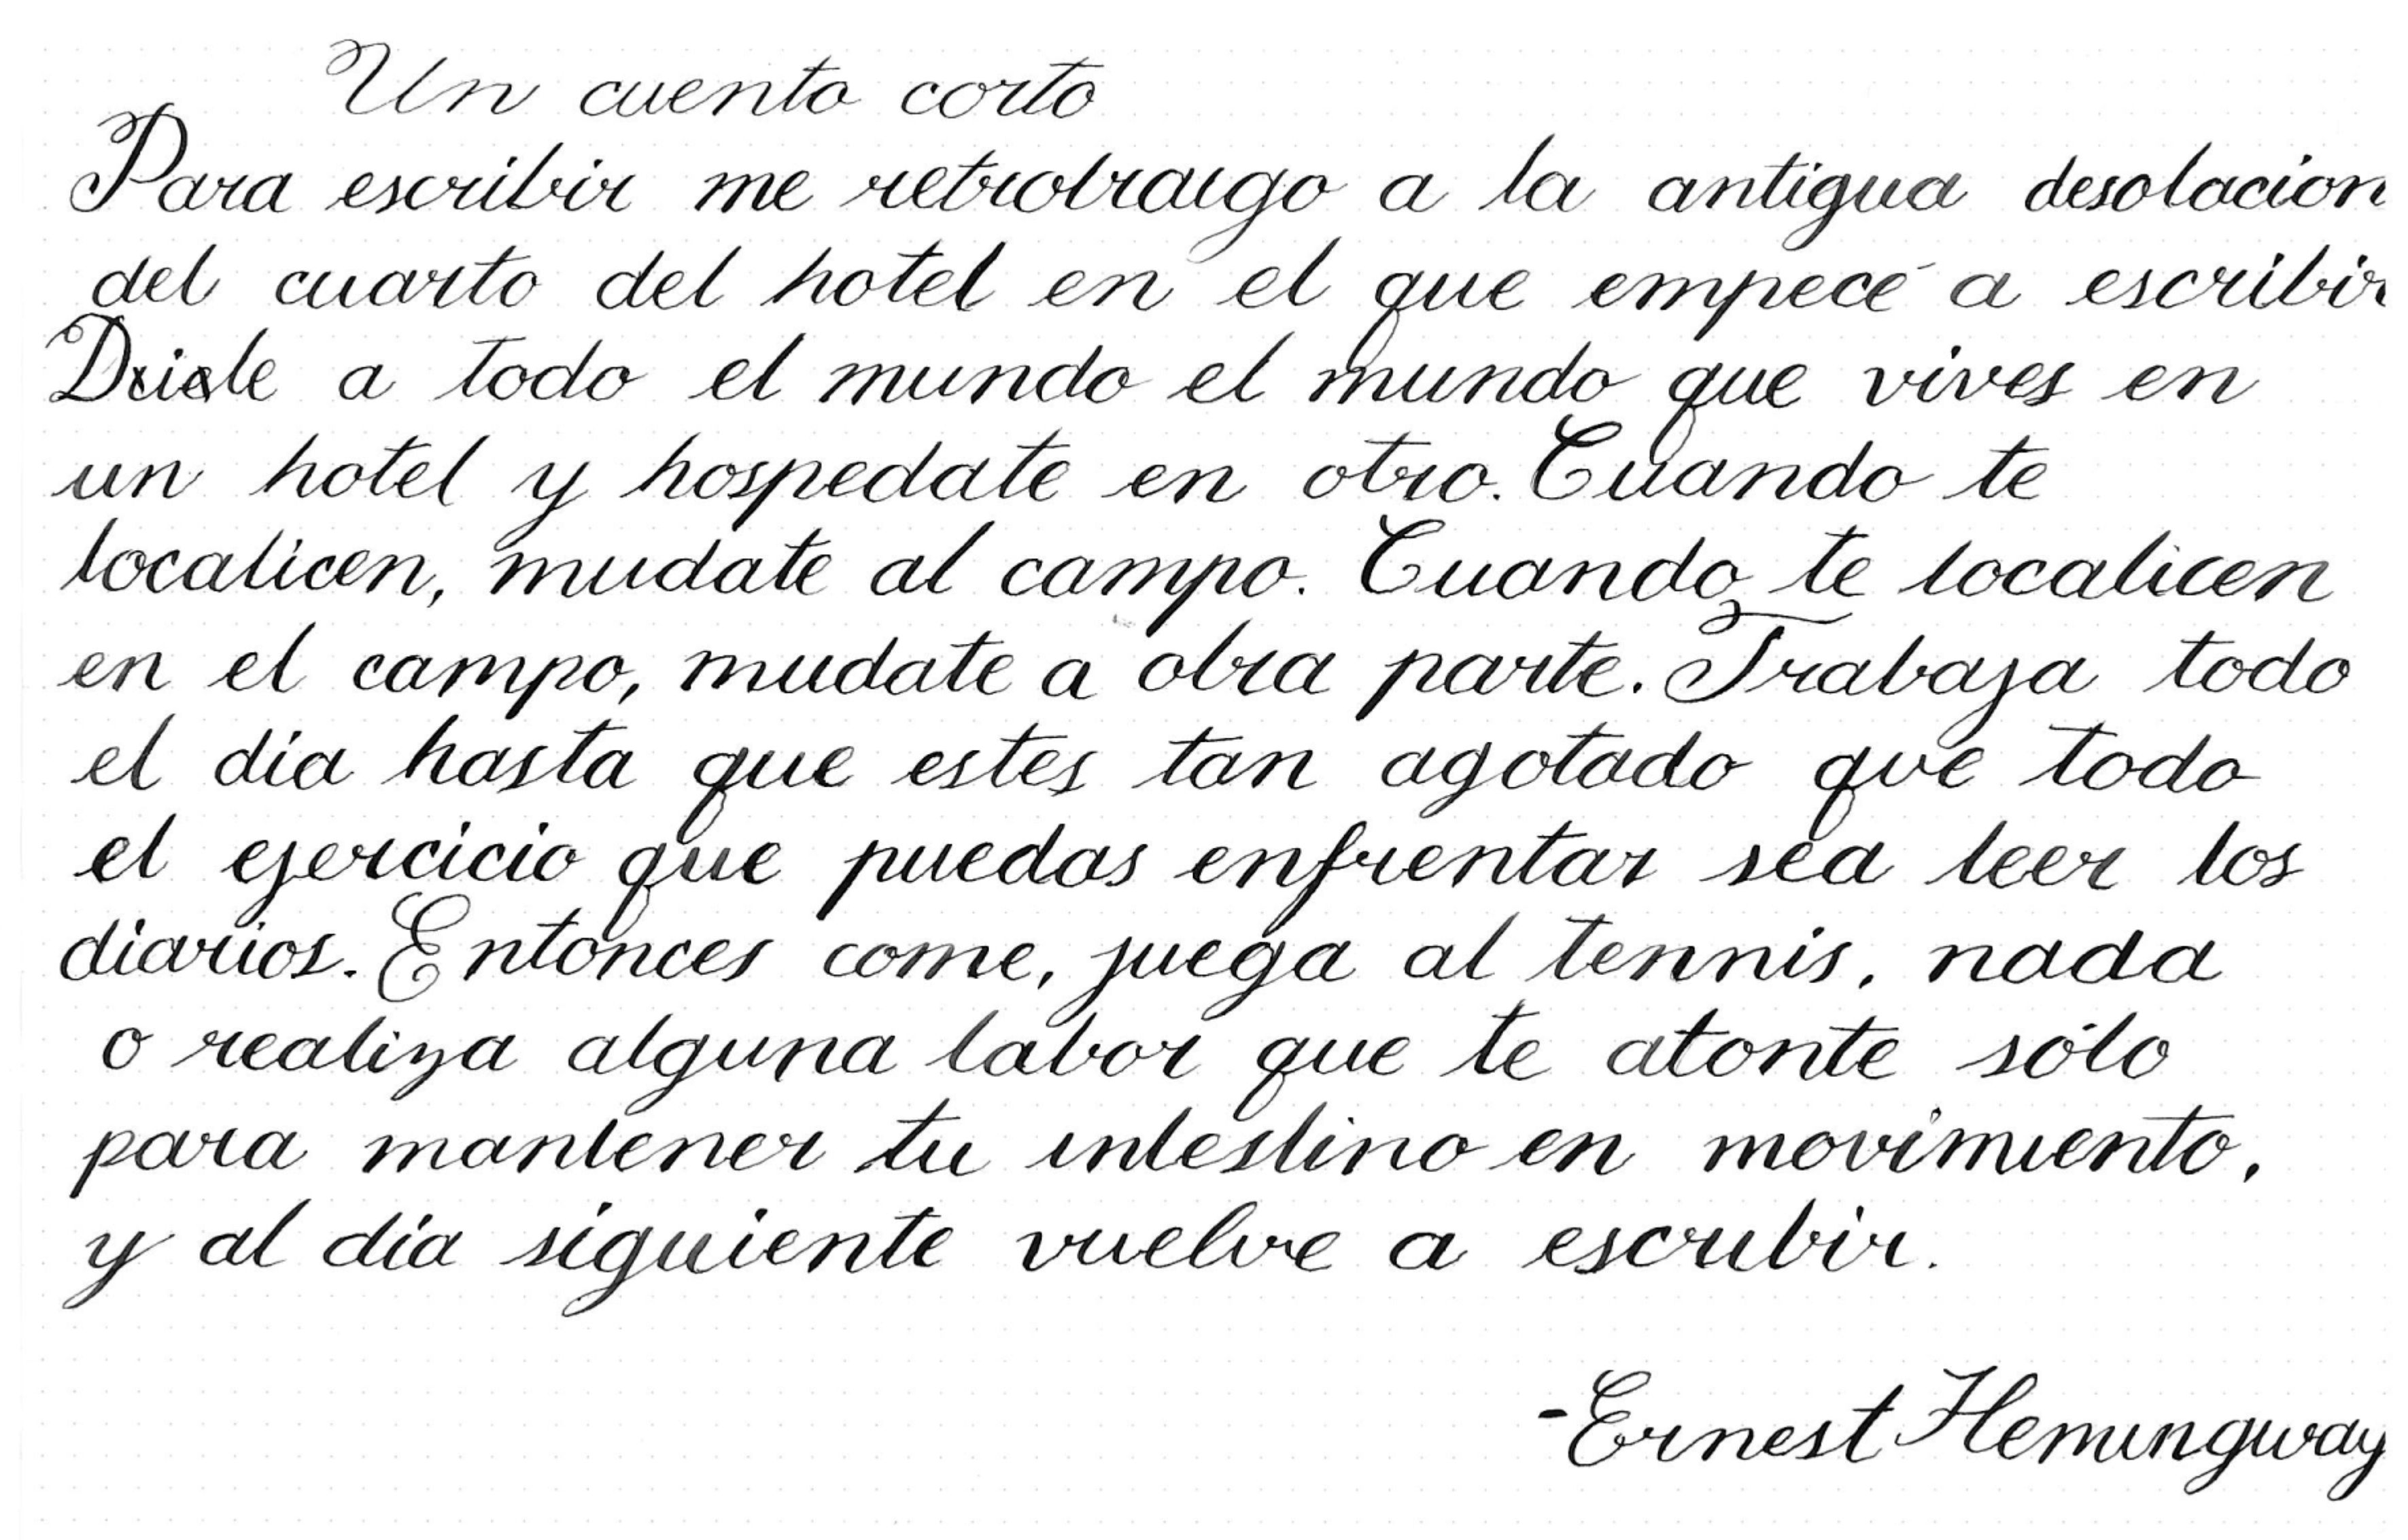 Un cuento corto
Para escribir me retrotraigo a la antigua desolacion
del cuarto del hotel en el que empecé a escribir
a todo el mundo el mundo que vives en
un hotel y hospedate en otro. Cuando te
localicen, mudate al campo. Cuando te localicen
en el campo, mudate a otra parte. Trabaja todo
el día hasta que estes tan agotado que todo
el ejercicio que puedas enfrentar sea leer los
diarios. Entonces come, juega al tennis, nada
o realiza alguna labor que te atonte sólo
para mantener tu intestino en movimiento,
y al día siguiente vuelve a escribir.
-Ernest Hemingway